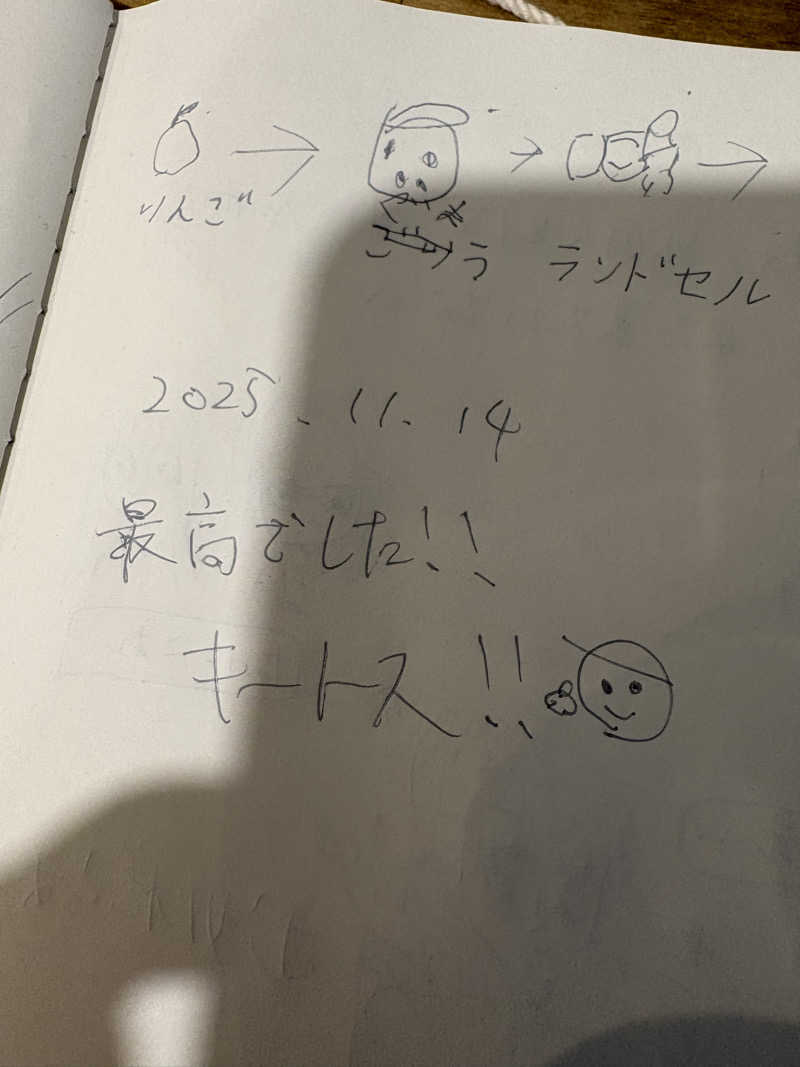 りんご
ランドセル
2025.11.14
最高でした!!
キートス!!